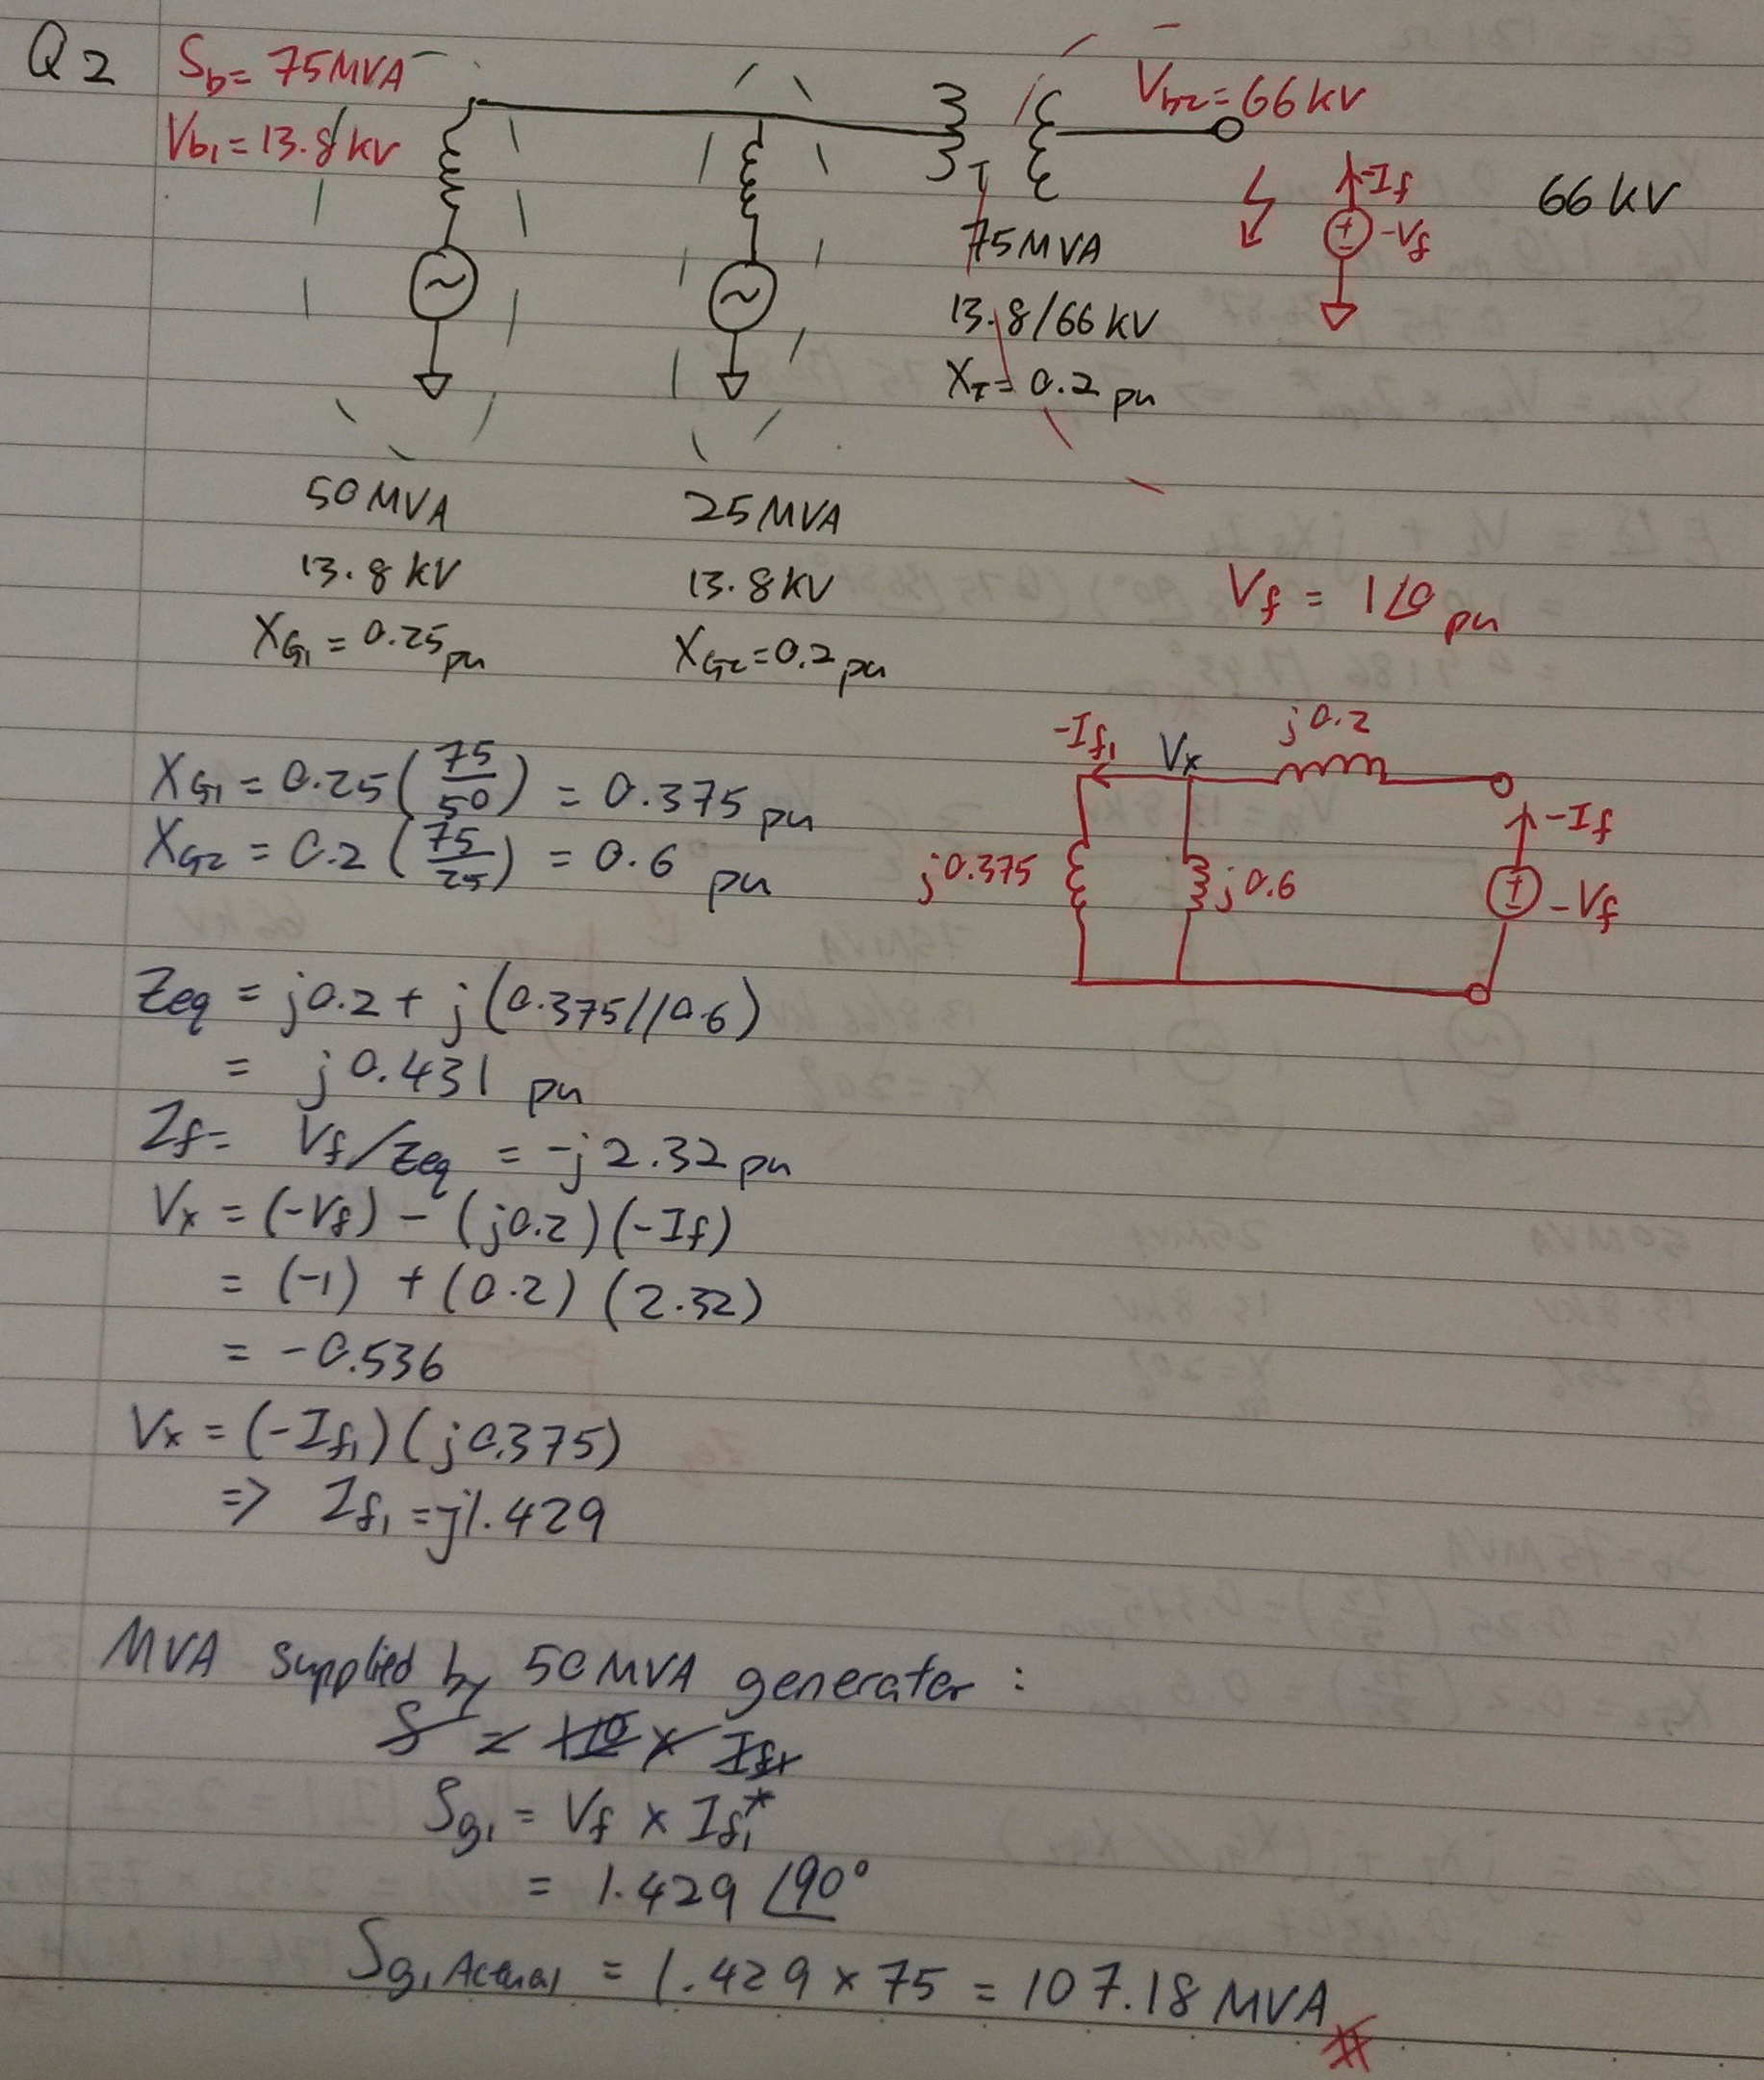 Q2
S_b = 75MVA
V_b1 = 13.8 kV
V_b2 = 66 kV
-I_f
-V_f
66 kV
T
75MVA
13.8/66 kV
X_T = 0.2 pu
50MVA
13.8 kV
X_G1 = 0.25 pu
25MVA
13.8kV
X_G2 = 0.2 pu
V_f = 1∠0 pu
X_G1 = 0.25(75/50) = 0.375 pu
X_G2 = 0.2(75/25) = 0.6 pu
-I_f1
V_x
j0.2
j0.375
j0.6
-I_f
-V_f
Z_eq = j0.2 + j(0.375//0.6)
= j0.431 pu
I_f = V_f/Z_eq = -j2.32 pu
V_x = (-V_f) - (j0.2)(-I_f)
= (-1) + (0.2)(2.32)
= -0.536
V_x = (-I_f1)(j0.375)
=> I_f1 = j1.429
MVA supplied by 50MVA generator :
S_g1 = V_f x I_f1*
= 1.429 ∠90°
S_g1 Actual = 1.429 x 75 = 107.18 MVA